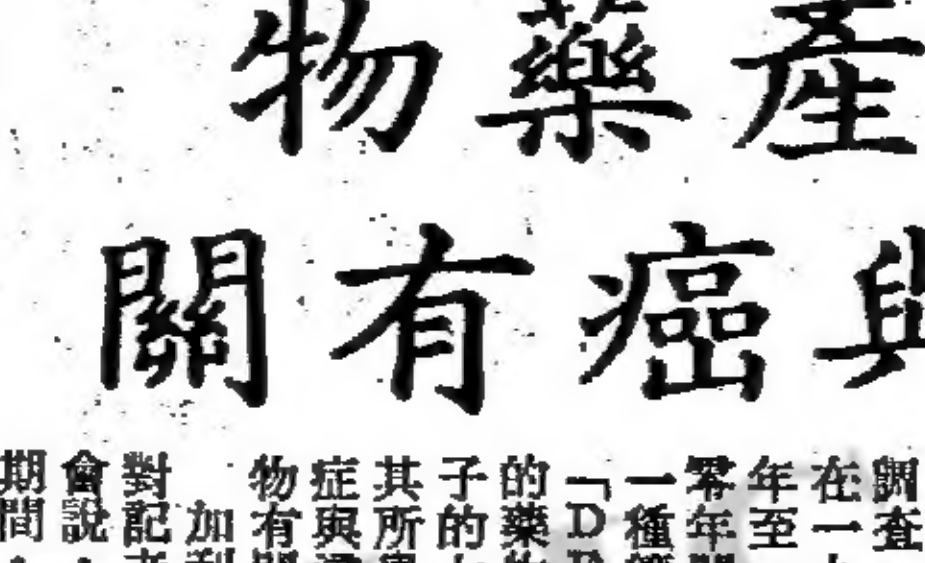 產藥物
與癌有關
調查
在一
年至
零年
一種
「D
的藥
子的
其所
症與
物有
加利
對記
會說
期間